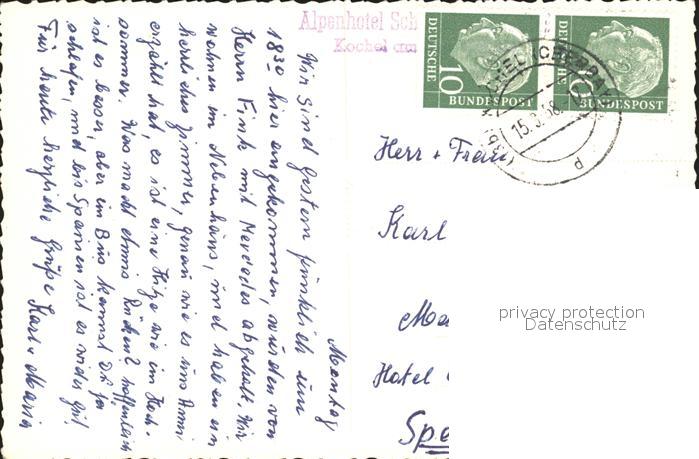 Alpenhotel Sch
Kochel am
DEUTSCHE
10
BUNDESPOST
DEUTSCHE
10
BUNDESPOST
KOCHEL (OBERBAY
15.9.58
d
Montag
Wir sind gestern pünktlich um
18³⁰ hier angekommen, wurden von
Herrn Fink mit Mercedes abgeholt. Wir
wohnen im Nebenhaus, und haben ein
herrliches Zimmer, genau wie es uns Anni
erzählt hat, es ist eine Hitze wie im Hoch-
sommer. Was macht Rücken? hoffentlich
ist es besser, aber im Bus kannst Du ja
schlafen, und bis Spanien ist es wieder gut.
Für heute herzliche Grüße Karl u Maria
Herr + Frau
Karl
Hotel
Spa
privacy protection
Datenschutz